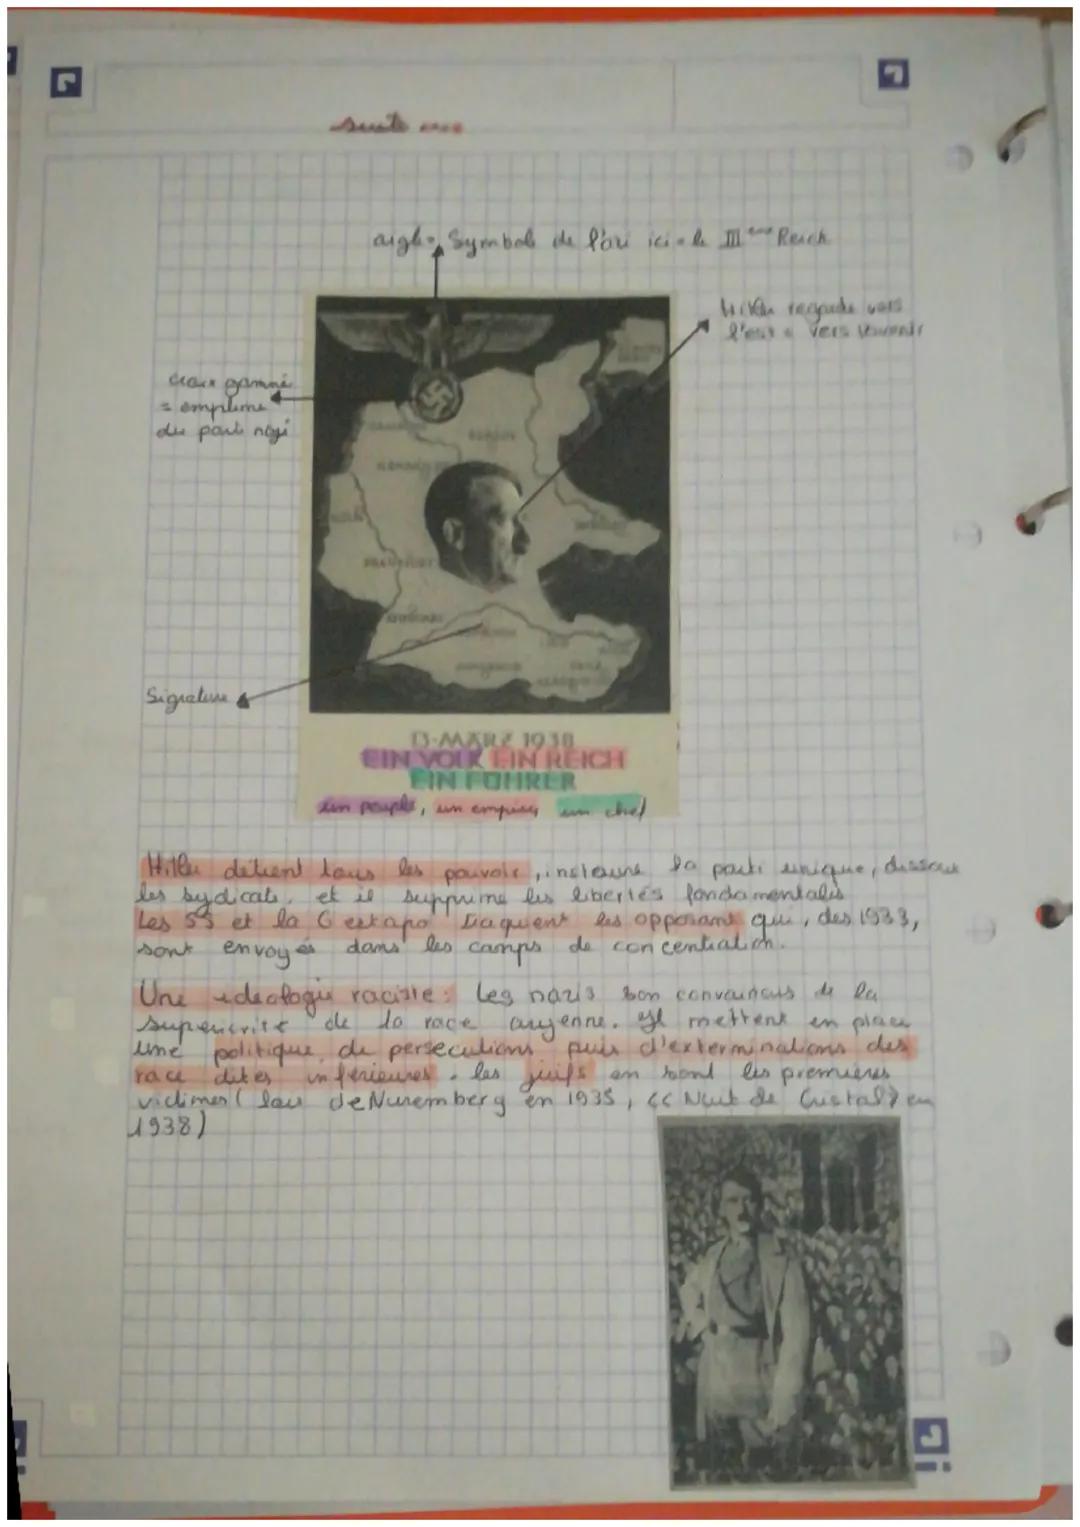 suite
aigle = Symbole de l'ari ici = le III eme Reich
Hitler regarde vers
l'est = vers
croix gammé
= emplime
du parti nazi
FRANKFURT
Signature
13·MÄRZ 1938
EIN VOLK EIN REICH
EIN FÜHRER
un peuple, un empire, un chef
Hitler détient tous les pouvoir, instaure la parti unique, dissout
les sydicats, et il supprime les libertés fondamentales
Les SS et la Gestapo traquent les opposant qui, des 1933,
sont envoyés dans les camps de concentration.
Une ideologie raciste: Les nazis son convaincus de la
superiorite de la race aryenne. Il mettent en place
une politique de persecutions puis d'exterminations des
race dites inférieures. les juifs en sont les premières
victimes ( lois de Nuremberg en 1935, << Nuit de Cristal> en
1938)